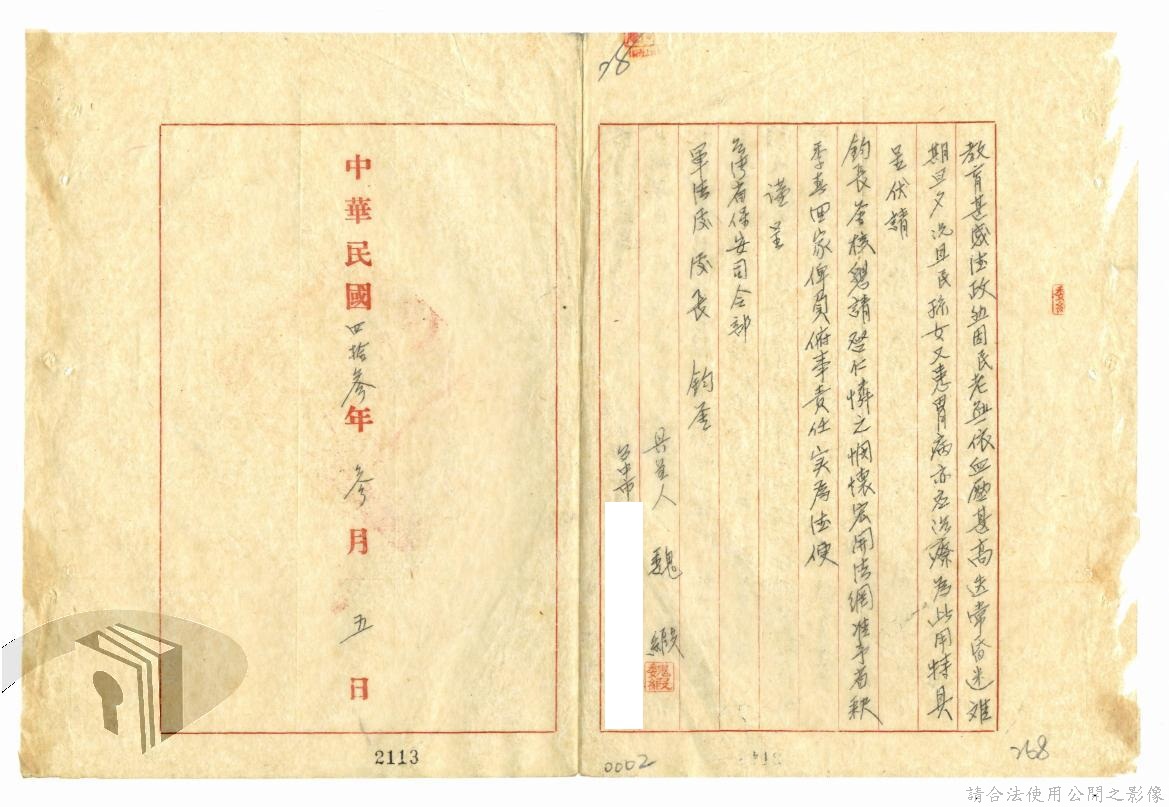 教育甚感德政無因民老無依血壓甚高迭常昏迷难
期旦夕况且民孫女又患胃病亦在治療為此用特具
呈伏請
鈞長鉴核懇請登仁憐之憫懷宏開法網准予省釈
季真回家俾負俯事責任实為德便
謹呈
台湾省保安司令部
軍法處處長 鈞鉴
具呈人 魏緞
魏緞
台中市
中華民國四拾叁年叁月五日
2113
0002
268
268
請合法使用公開之影像